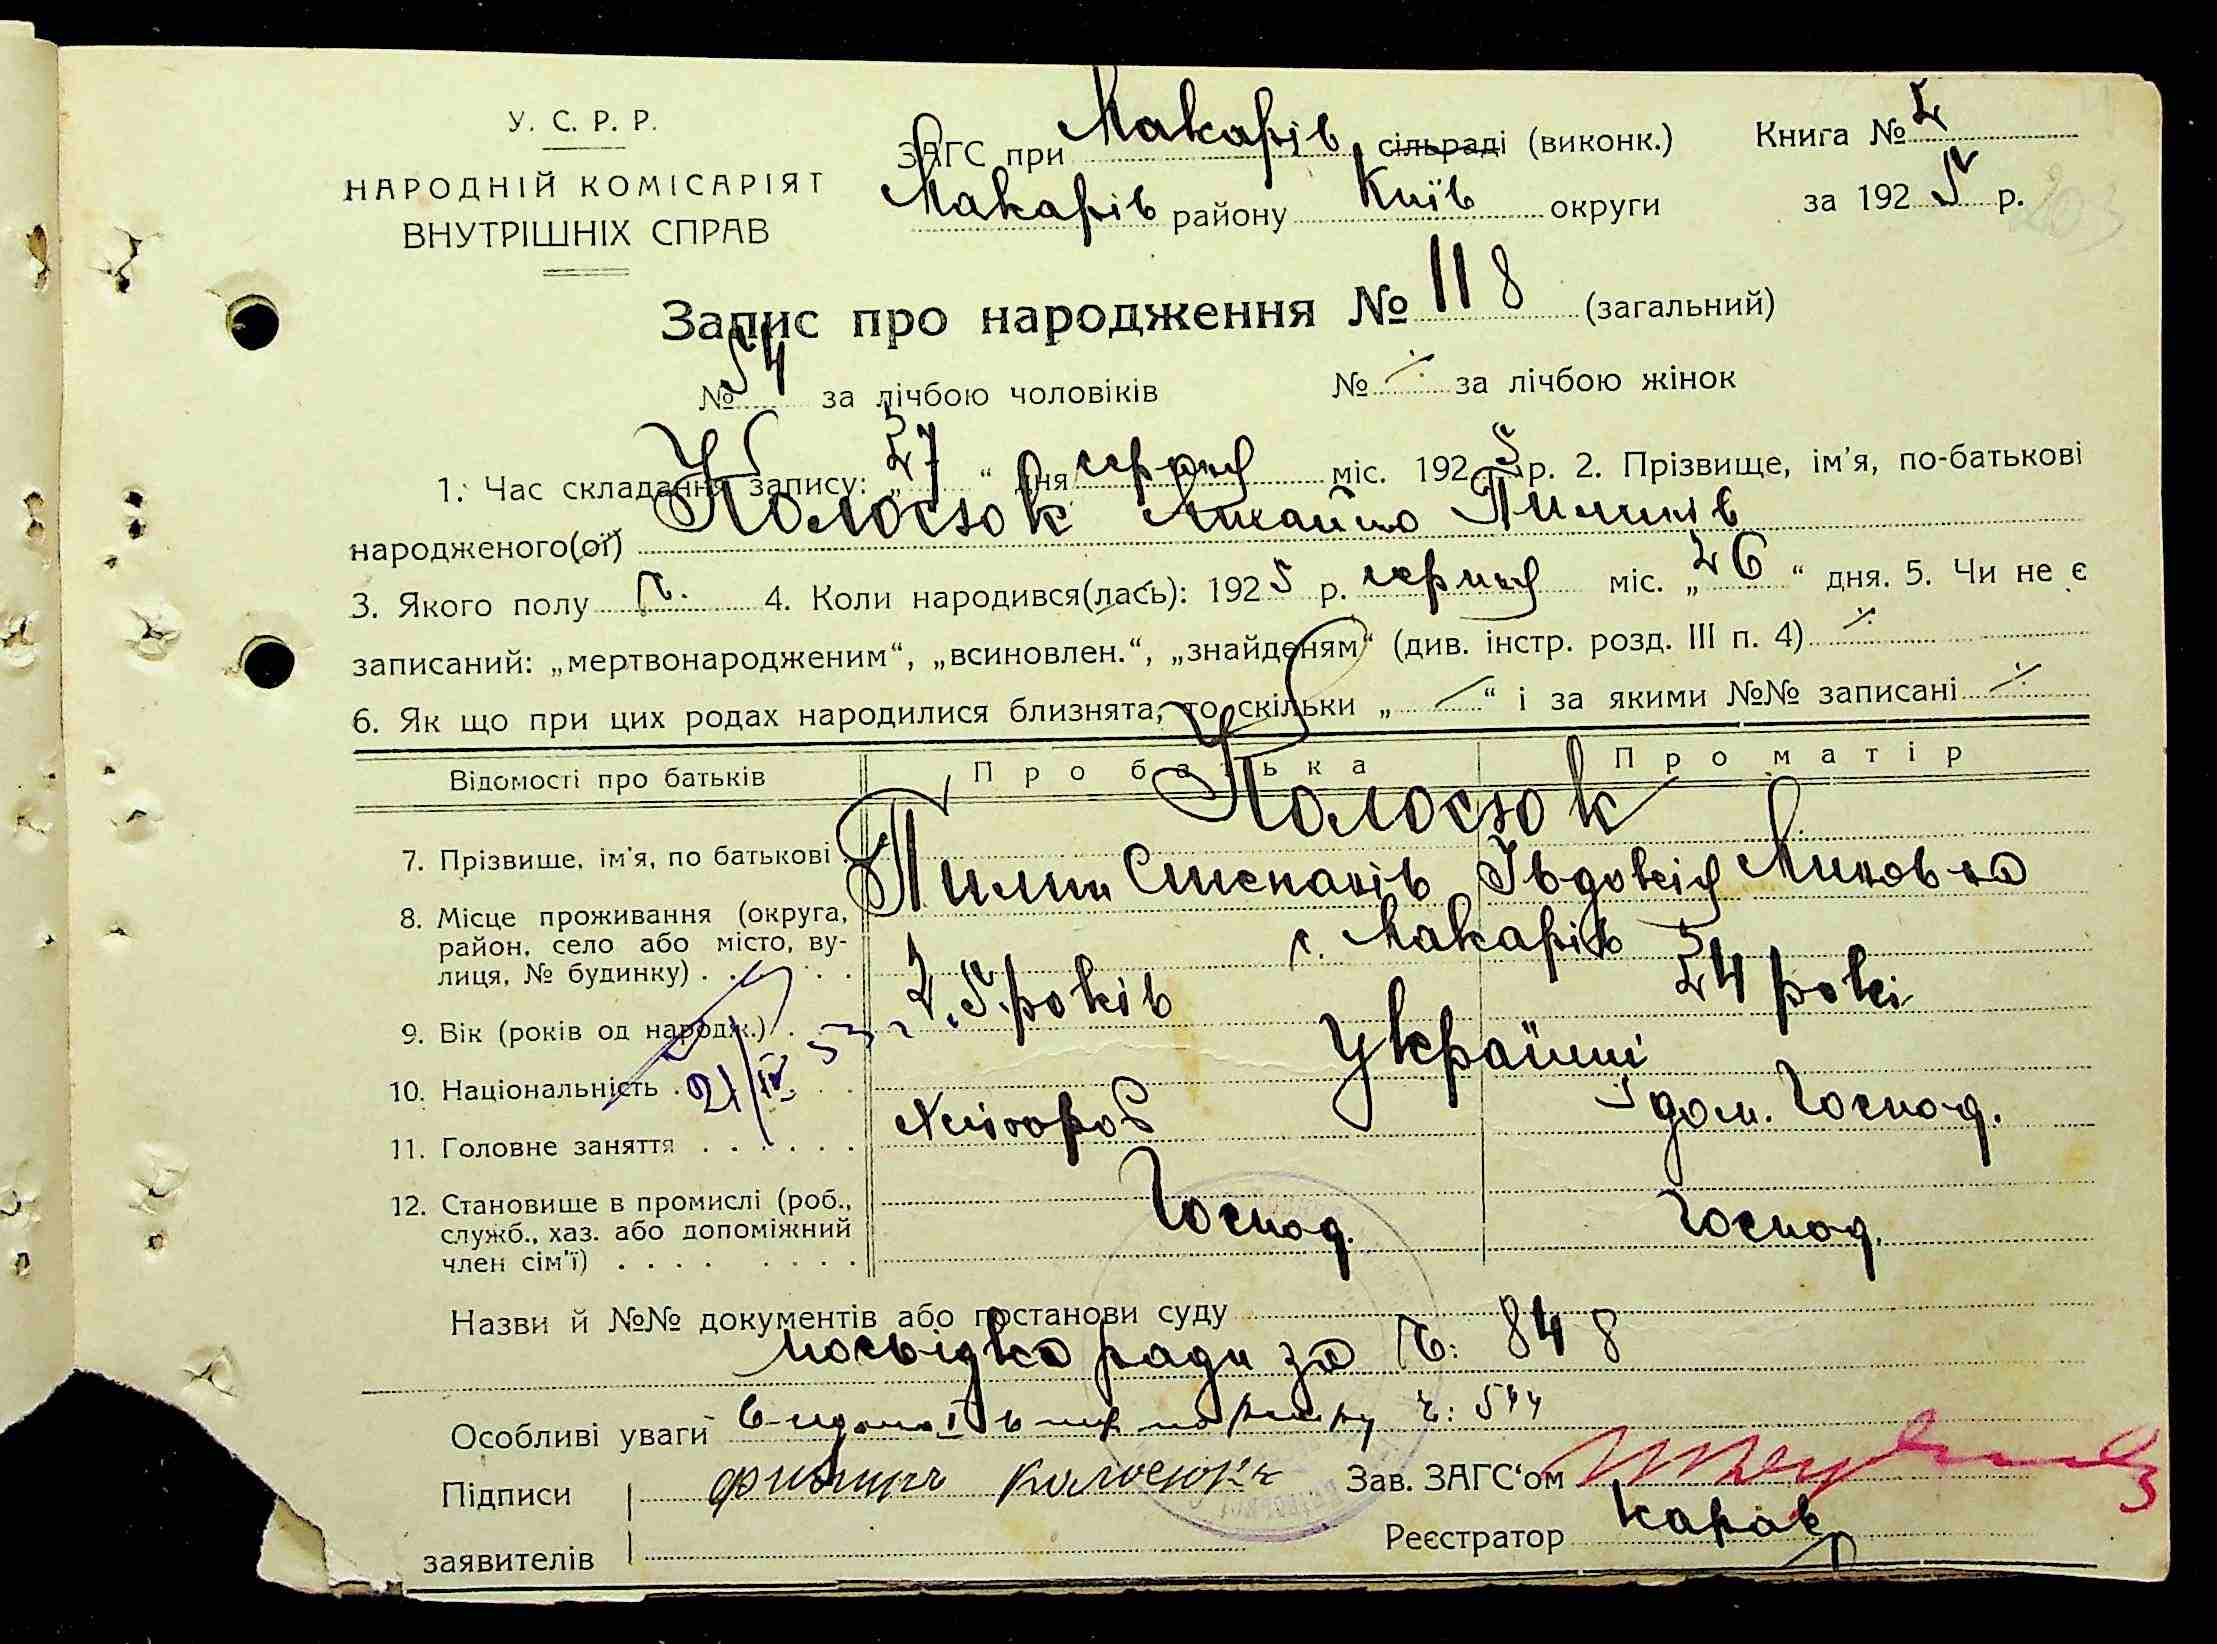 У. С. Р. Р.
НАРОДНІЙ КОМІСАРІЯТ
ВНУТРІШНІХ СПРАВ
ЗАГС при Макарів сільраді (виконк.) Книга № 2
Макарів району Київ округи за 1925 р.
203
Запис про народження № 118 (загальний)
№ 54 за лічбою чоловіків № ∕. за лічбою жінок
1. Час складання запису: „27“ дня серпня міс. 1925 р. 2. Прізвище, ім'я, по-батькові
народженого(ої) Колосюк Михайло Пилипів
3. Якого полу ч. 4. Коли народився(лась): 1925 р. серпня міс. „26“ дня. 5. Чи не є
записаний: „мертвонародженим“, „всиновлен.“, „знайденям“ (див. інстр. розд. III п. 4) ∕.
6. Як що при цих родах народилися близнята, то скільки „ — “ і за якими №№ записані ∕.
Відомості про батьків Про батька Про матір
Колосюк
7. Прізвище, ім'я, по батькові . Пилип Степанів Івдокія
8. Місце проживання (округа, район, село або місто, вулиця, № будинку) . . . . . с. Макарів
9. Вік (років од народж.) . 25 років 24 рокі
10. Національність . . . . Українці
21/IV 53 г.
11. Головне заняття . . . . . . Хлібороб дом. господ.
12. Становище в промислі (роб.,
служб., хаз. або допоміжний
член сім'ї) . . . . . . . . Господ. Господ.
Назви й №№ документів або постанови суду
посвідка ради за ч: 848
Особливі уваги ч: 544
Підписи Филипъ Колосюкъ Зав. ЗАГС'ом
заявителів Реєстратор